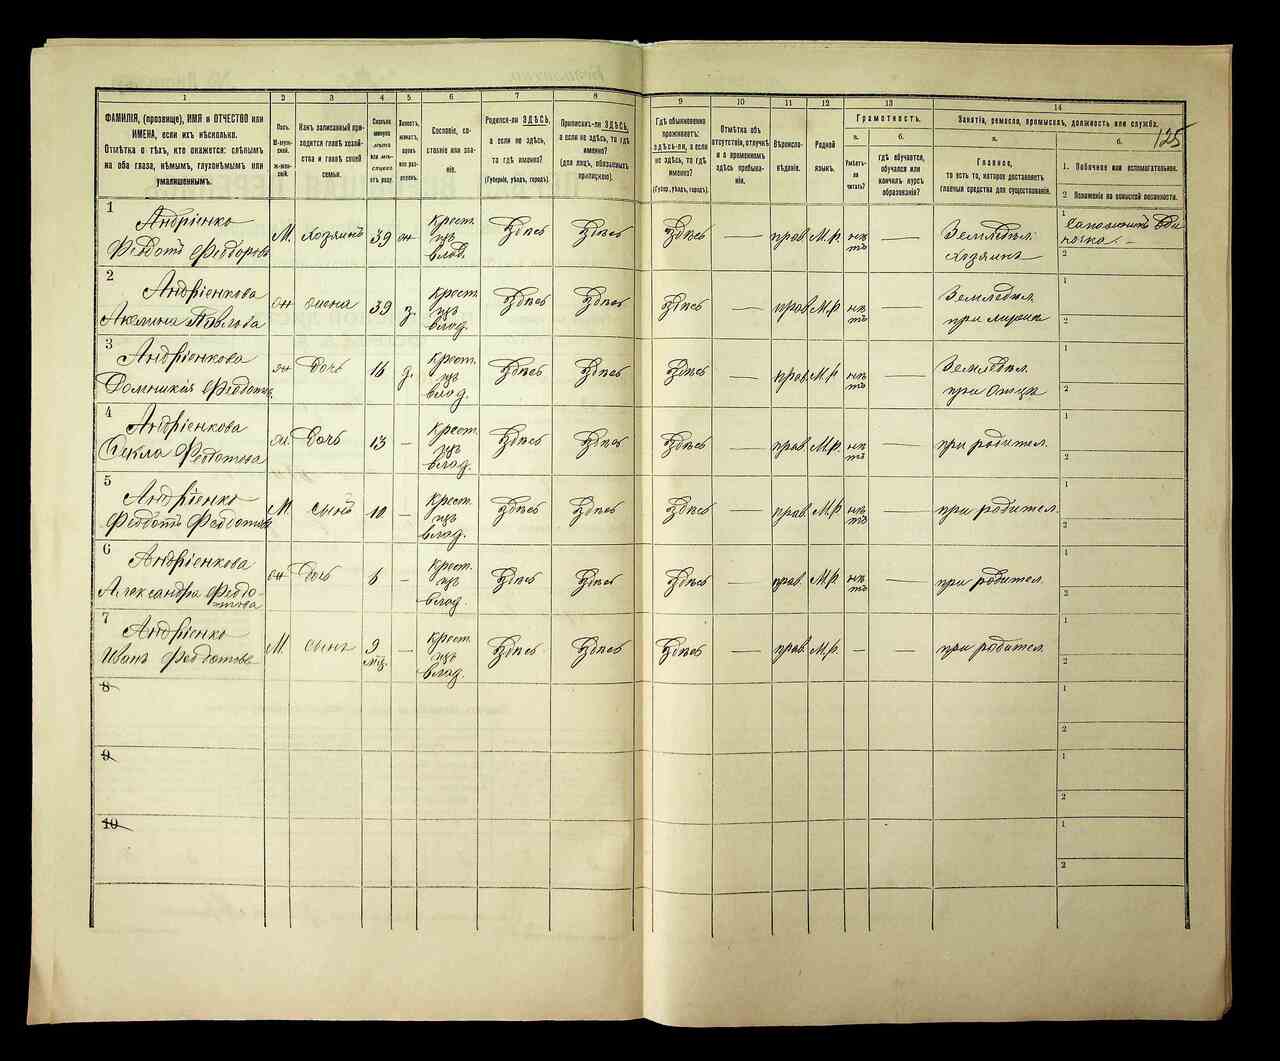 1 2 3 4 5 6 7 8 9 10 11 12 13 14
ФАМИЛІЯ, (прозвище), ИМЯ и ОТЧЕСТВО или
ИМЕНА, если ихъ нѣсколько.
Отмѣтка о тѣхъ, кто окажется: слѣпымъ
на оба глаза, нѣмымъ, глухонѣмымъ или
умалишеннымъ.
Полъ.
М-муж-
ской.
ж-жен-
скій.
Какъ записанный при-
ходится главѣ хозяй-
ства и главѣ своей
семьи.
Сколько
минуло
лѣтъ
или мѣ-
сяцевъ
отъ роду.
Холостъ,
женатъ,
вдовъ
или раз-
веденъ.
Сословіе, со-
стояніе или зва-
ніе.
Родился-ли ЗДѢСЬ,
а если не здѣсь,
то гдѣ именно?
(Губернія, уѣздъ, городъ).
Приписанъ-ли ЗДѢСЬ,
а если не здѣсь, то гдѣ
именно?
(для лицъ, обязанныхъ
припискою).
Гдѣ обыкновенно
проживаетъ:
ЗДѢСЬ-ЛИ, а если
не здѣсь, то гдѣ
именно?
(Губер., уѣздъ, городъ).
Отмѣтка объ
отсутствіи, отлучкѣ
и о временномъ
здѣсь пребыва-
ніи.
Вѣроиспо-
вѣданіе.
Родной
языкъ.
Грамотность.
а.
Умѣетъ-
ли
читать?
б.
гдѣ обучается,
обучался или
кончилъ курсъ
образованія?
Занятіе, ремесло, промыселъ, должность или служба.
а.
Главное,
то есть то, которое доставляетъ
главныя средства для существованія.
б.
125
1. Побочное или вспомогательное.
2 Положеніе по воинской повинности.
1
Андріенко
Феодотъ Феодоровъ
М. хозяинъ 39 Крест. изъ влад. здѣсь здѣсь здѣсь — прав. М.р. нѣтъ —
Земледѣл.
хозяинъ
1
2
2
Андріенкова
Акелина Павлова
жена 39 з. Крест. изъ влад. здѣсь здѣсь здѣсь — прав. М.р. нѣтъ —
Земледѣл.
при мужѣ
1
2
3
Андріенкова
Домникія Феодотов.
дочь 16 д. Крест. изъ влад. здѣсь здѣсь здѣсь — прав. М.р. нѣтъ —
Земледѣл.
при отцѣ
1
2
4
Андріенкова
Фекла Федотова
дочь 13 — Крест. изъ влад. здѣсь здѣсь здѣсь — прав. М.р. нѣтъ — при родител.
1
2
5
Андріенко
Феодотъ Феодотовъ
М. сынъ 10 — Крест. изъ влад. здѣсь здѣсь здѣсь — прав. М.р нѣтъ — при родител.
1
2
6
Андріенкова
Александра Федо-
това
дочь 6 — Крест. изъ влад. здѣсь здѣсь здѣсь — прав. М.р. нѣтъ — при родител.
1
2
7
Андріенко
Иванъ Феодотовъ
М. сынъ 9 мѣс. — Крест. изъ влад. здѣсь здѣсь здѣсь — прав. М.р. — — при родител.
1
2
8
1
2
9
1
2
10
1
2